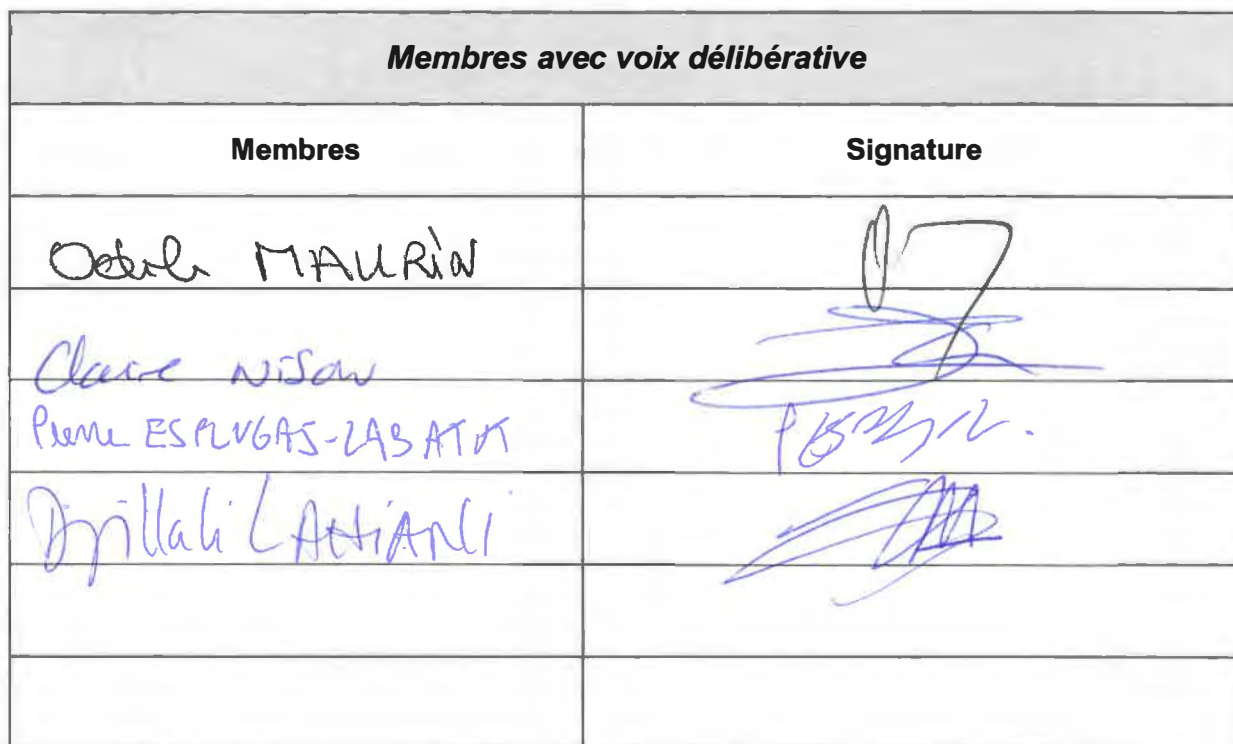 Membres avec voix délibérative
Membres Signature
Odile MAURIN
Claire NISON
Pierre ESPLUGAS-LABATUT
Djillali LAHIANI